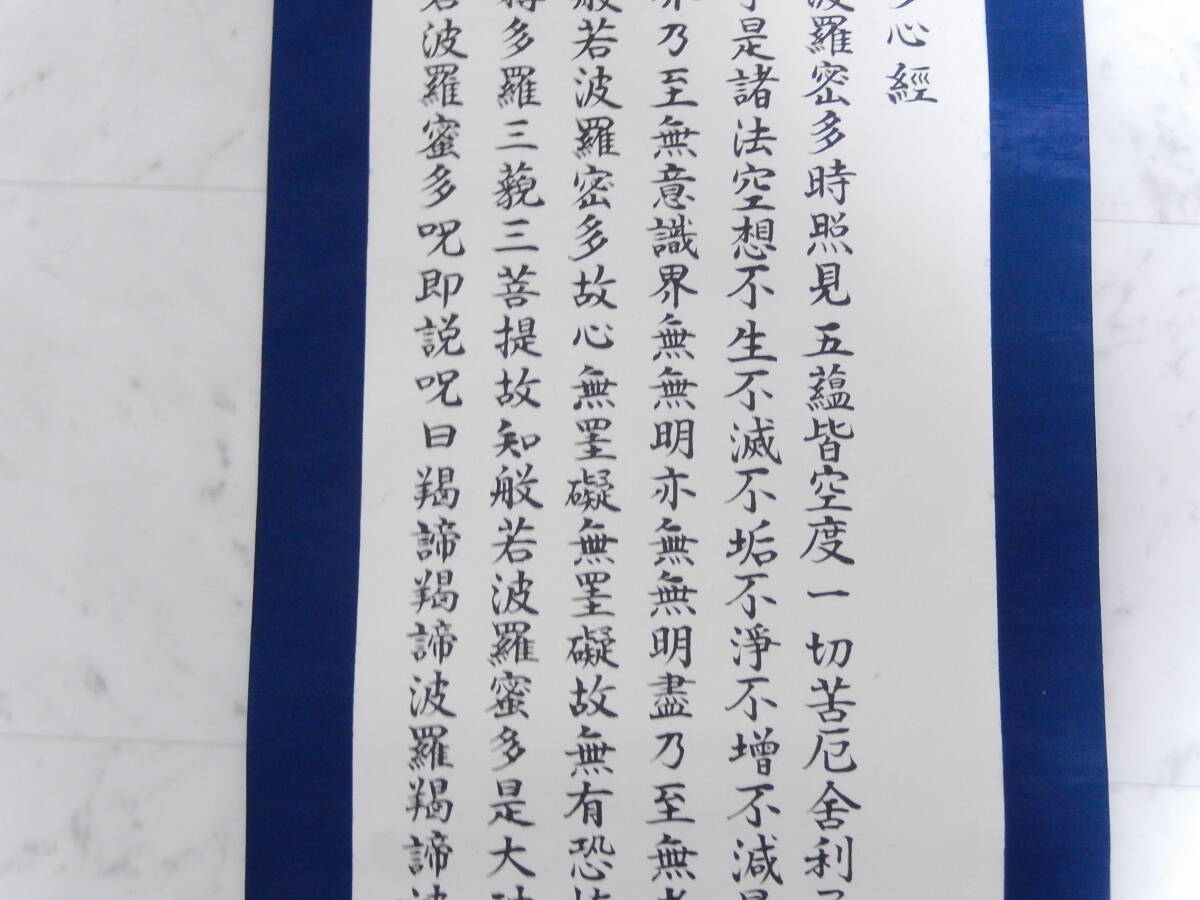 心經
波羅密多時照見五蘊皆空度一切苦厄舍利
是諸法空想不生不滅不垢不淨不增不減
乃至無意識界無無明亦無無明盡乃至無
般若波羅密多故心無罣礙無罣礙故無有恐
多羅三藐三菩提故知般若波羅蜜多是大
波羅蜜多呪即説呪曰羯諦羯諦波羅羯諦